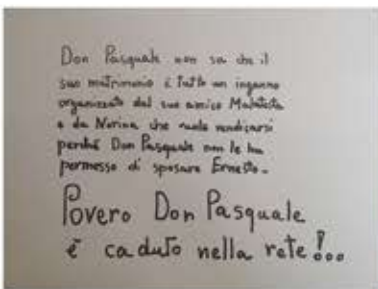 Don Pasquale non sa che il
suo matrimonio è tutto un inganno
organizzato dal suo amico Malatesta
e da Norina che vuole vendicarsi
perché Don Pasquale non le ha
permesso di sposare Ernesto.
Povero Don Pasquale
è caduto nella rete!...